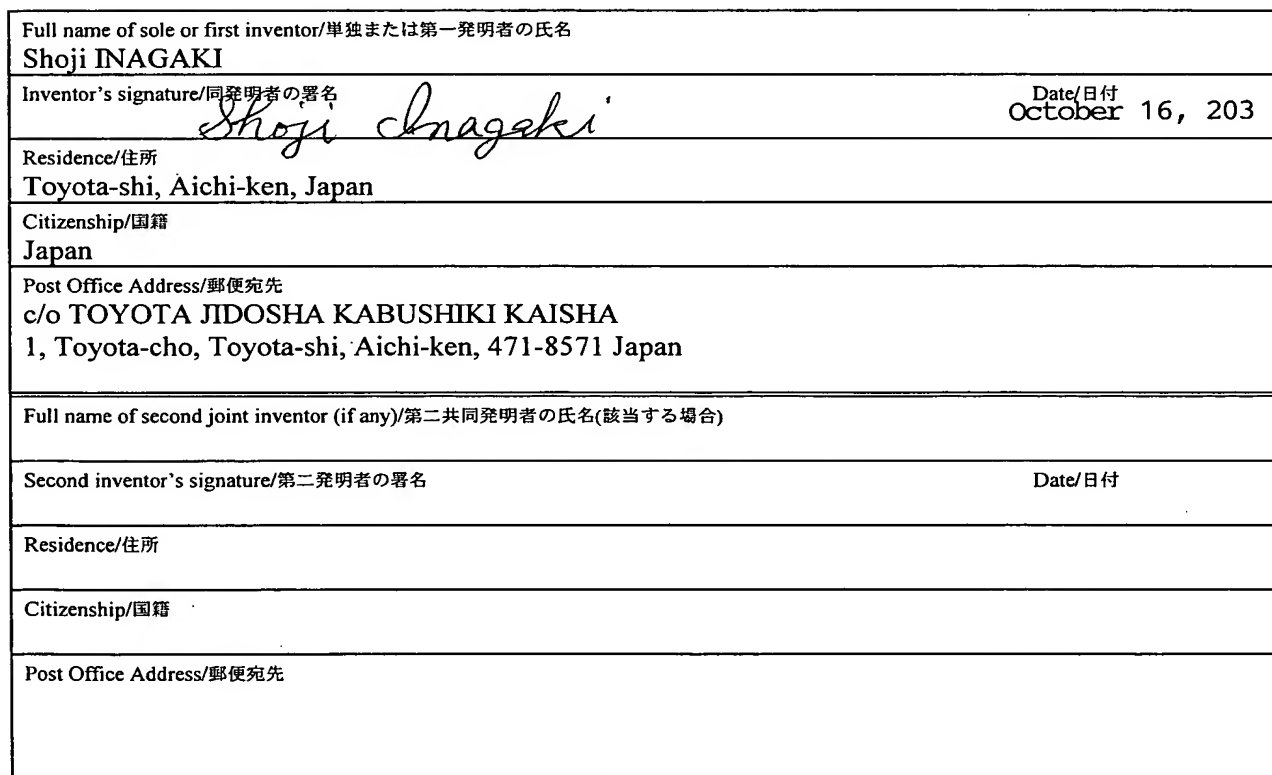 Full name of sole or first inventor/単独または第一発明者の氏名
Shoji INAGAKI
Inventor's signature/同発明者の署名 Date/日付
Shoji Inagaki October 16, 203
Residence/住所
Toyota-shi, Aichi-ken, Japan
Citizenship/国籍
Japan
Post Office Address/郵便宛先
c/o TOYOTA JIDOSHA KABUSHIKI KAISHA
1, Toyota-cho, Toyota-shi, Aichi-ken, 471-8571 Japan
Full name of second joint inventor (if any)/第二共同発明者の氏名(該当する場合)
Second inventor's signature/第二発明者の署名 Date/日付
Residence/住所
Citizenship/国籍
Post Office Address/郵便宛先